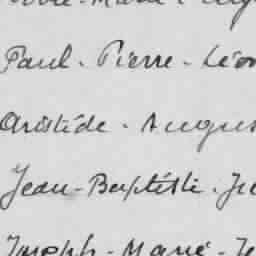 Paul - Pierre - Léon
Aristide - August
Jean-Baptiste - Ju
Joseph - Marie - Je